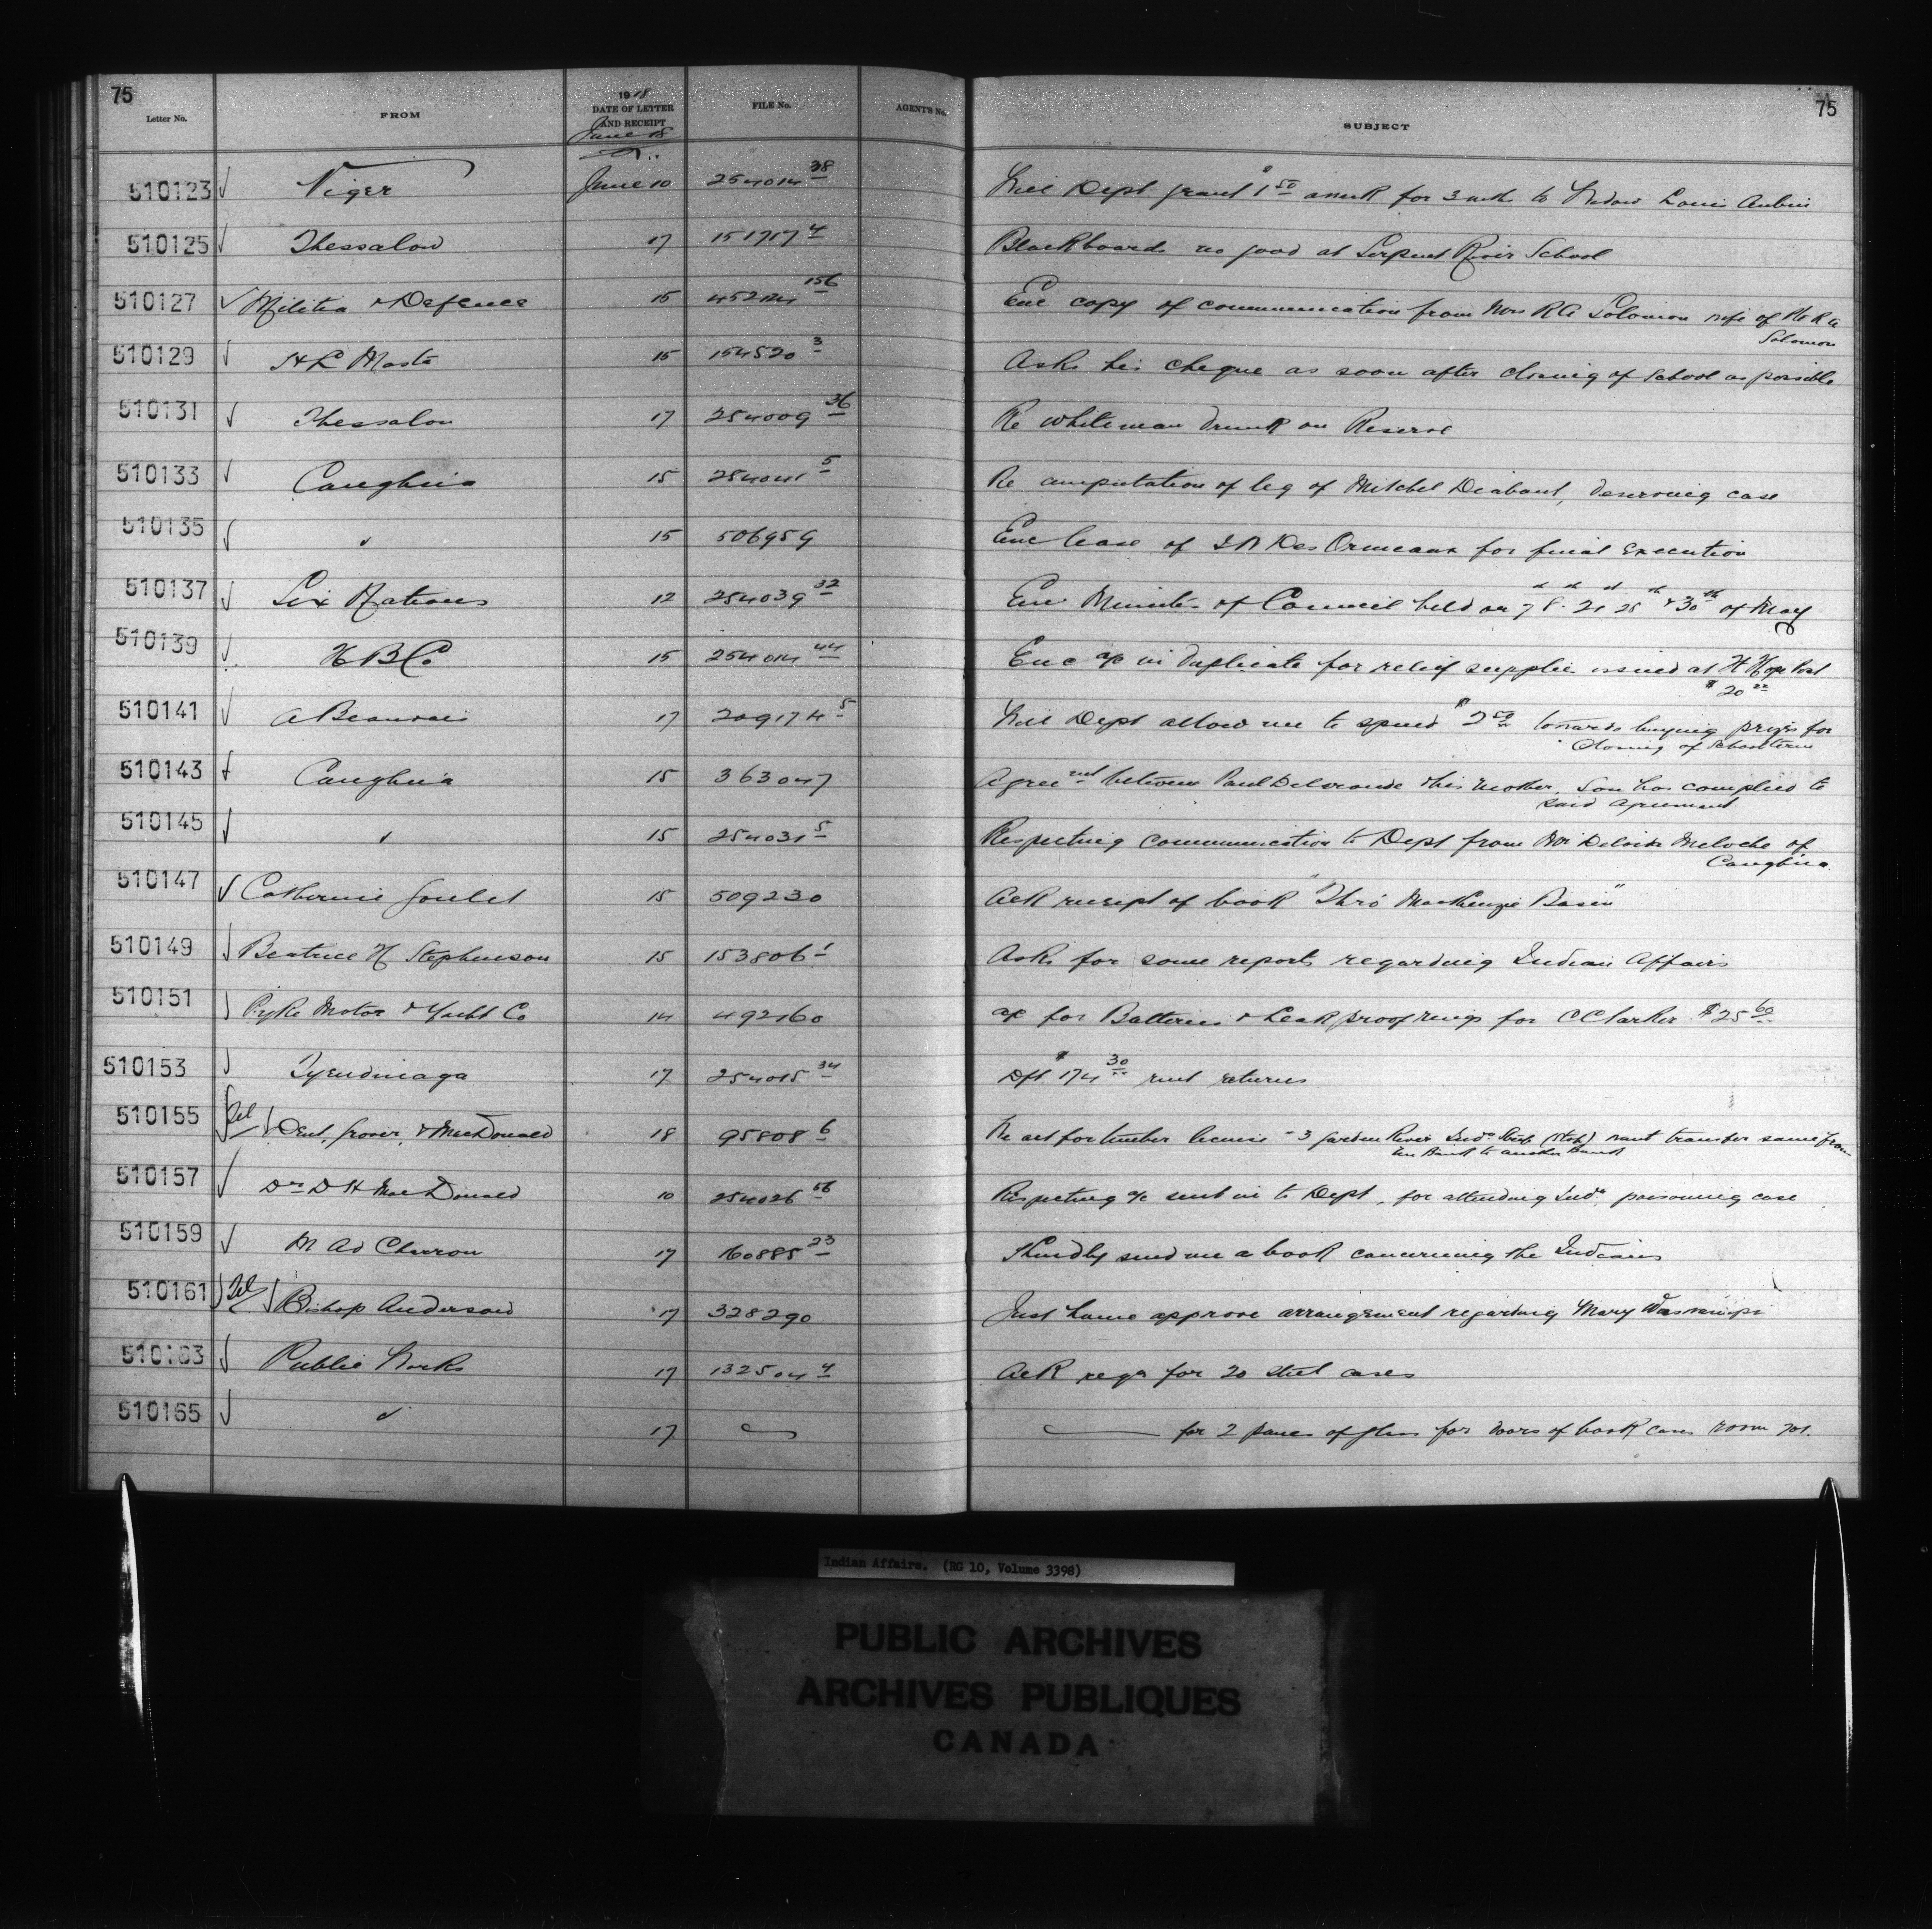 75
Letter No. FROM 1918 DATE OF LETTER AND RECEIPT FILE No. AGENT'S No. SUBJECT 75
June 18
510123 Viger June 10 254014 38 Will Dept grant $1 50 a week for 3 mths to Widow Louis Aubin
510125 Thessalon 17 151717 4 Blackboards no good at Serpent River School
510127 Militia & Defence 15 452124 156 Enc copy of communication from Mrs R A Solomon wife of Pte R A
Solomon
510129 15 154520 3 Asks his cheque as soon after closing of School as possible
510131 Thessalon 17 254009 36 Re whiteman drunk on Reserve
510133 Caughna 15 254041 5 Re amputation of leg of Mitchel Diabout, deserving case
510135 " 15 506959 Enc lease of Des Ormeaux for final execution
510137 Six Nations 12 254039 32 Enc Minutes of Council held on 7 8. 21 28 & 30th of May
510139 H B Co 15 254014 44 Enc a/c in duplicate for relief supplies issued at Ft Hope Post
$20
510141 A Beauvais 17 209174 5 Will Dept allow me to spend $2 50 towards buying prizes for
closing of School term
510143 Caughna 15 363047 Agreemt between Paul Deloronde & his mother. Son has complied to
said agreement
510145 " 15 254031 5 Respecting communication to Dept from Meloche of
Caughna
510147 Catherine Goulet 15 509230 Ack receipt of book "Thro' MacKenzie Basin"
510149 Beatrice H Stephenson 15 153806 1 Asks for some reports regarding Indian Affairs
510151 Pyke Motor & Yacht Co 14 492160 a/c for Batteries & Leakproof rings for C C Parker $25 60
510153 Tyendinaga 17 254015 34 Dft $174 30 rent returns
510155 Tel Dent, Grover, & MacDonald 18 95808 6 timber license - 3 Garden River Inds want transfer same from
one Bank to another Bank
510157 Dr D H MacDonald 10 254026 56 Respecting a/c sent in to Dept, for attending Inds poisoning case
510159 M Ad Charron 17 160885 23 Kindly send me a book concerning the Indians
510161 Tel Bishop Anderson 17 328290 Just home approve arrangement regarding Mary
510163 Public Works 17 132504 4 Ack reqn for 20 steel cases
510165 " 17 for 2 panes of glass for doors of book case room 701.
Indian Affairs. (RG 10, Volume 3398)
PUBLIC ARCHIVES
ARCHIVES PUBLIQUES
CANADA